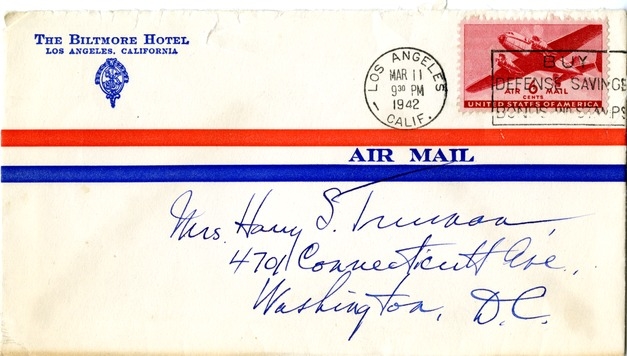 THE BILTMORE HOTEL
LOS ANGELES, CALIFORNIA
LOS ANGELES
MAR 11
9 30 PM
1942
CALIF.
BUY
DEFENSE SAVINGS
BONDS AND STAMPS
AIR 6 MAIL
CENTS
UNITED STATES OF AMERICA
AIR MAIL
Mrs. Harry S. Truman,
4701 Connecticutt Ave.,
Washington, D.C.